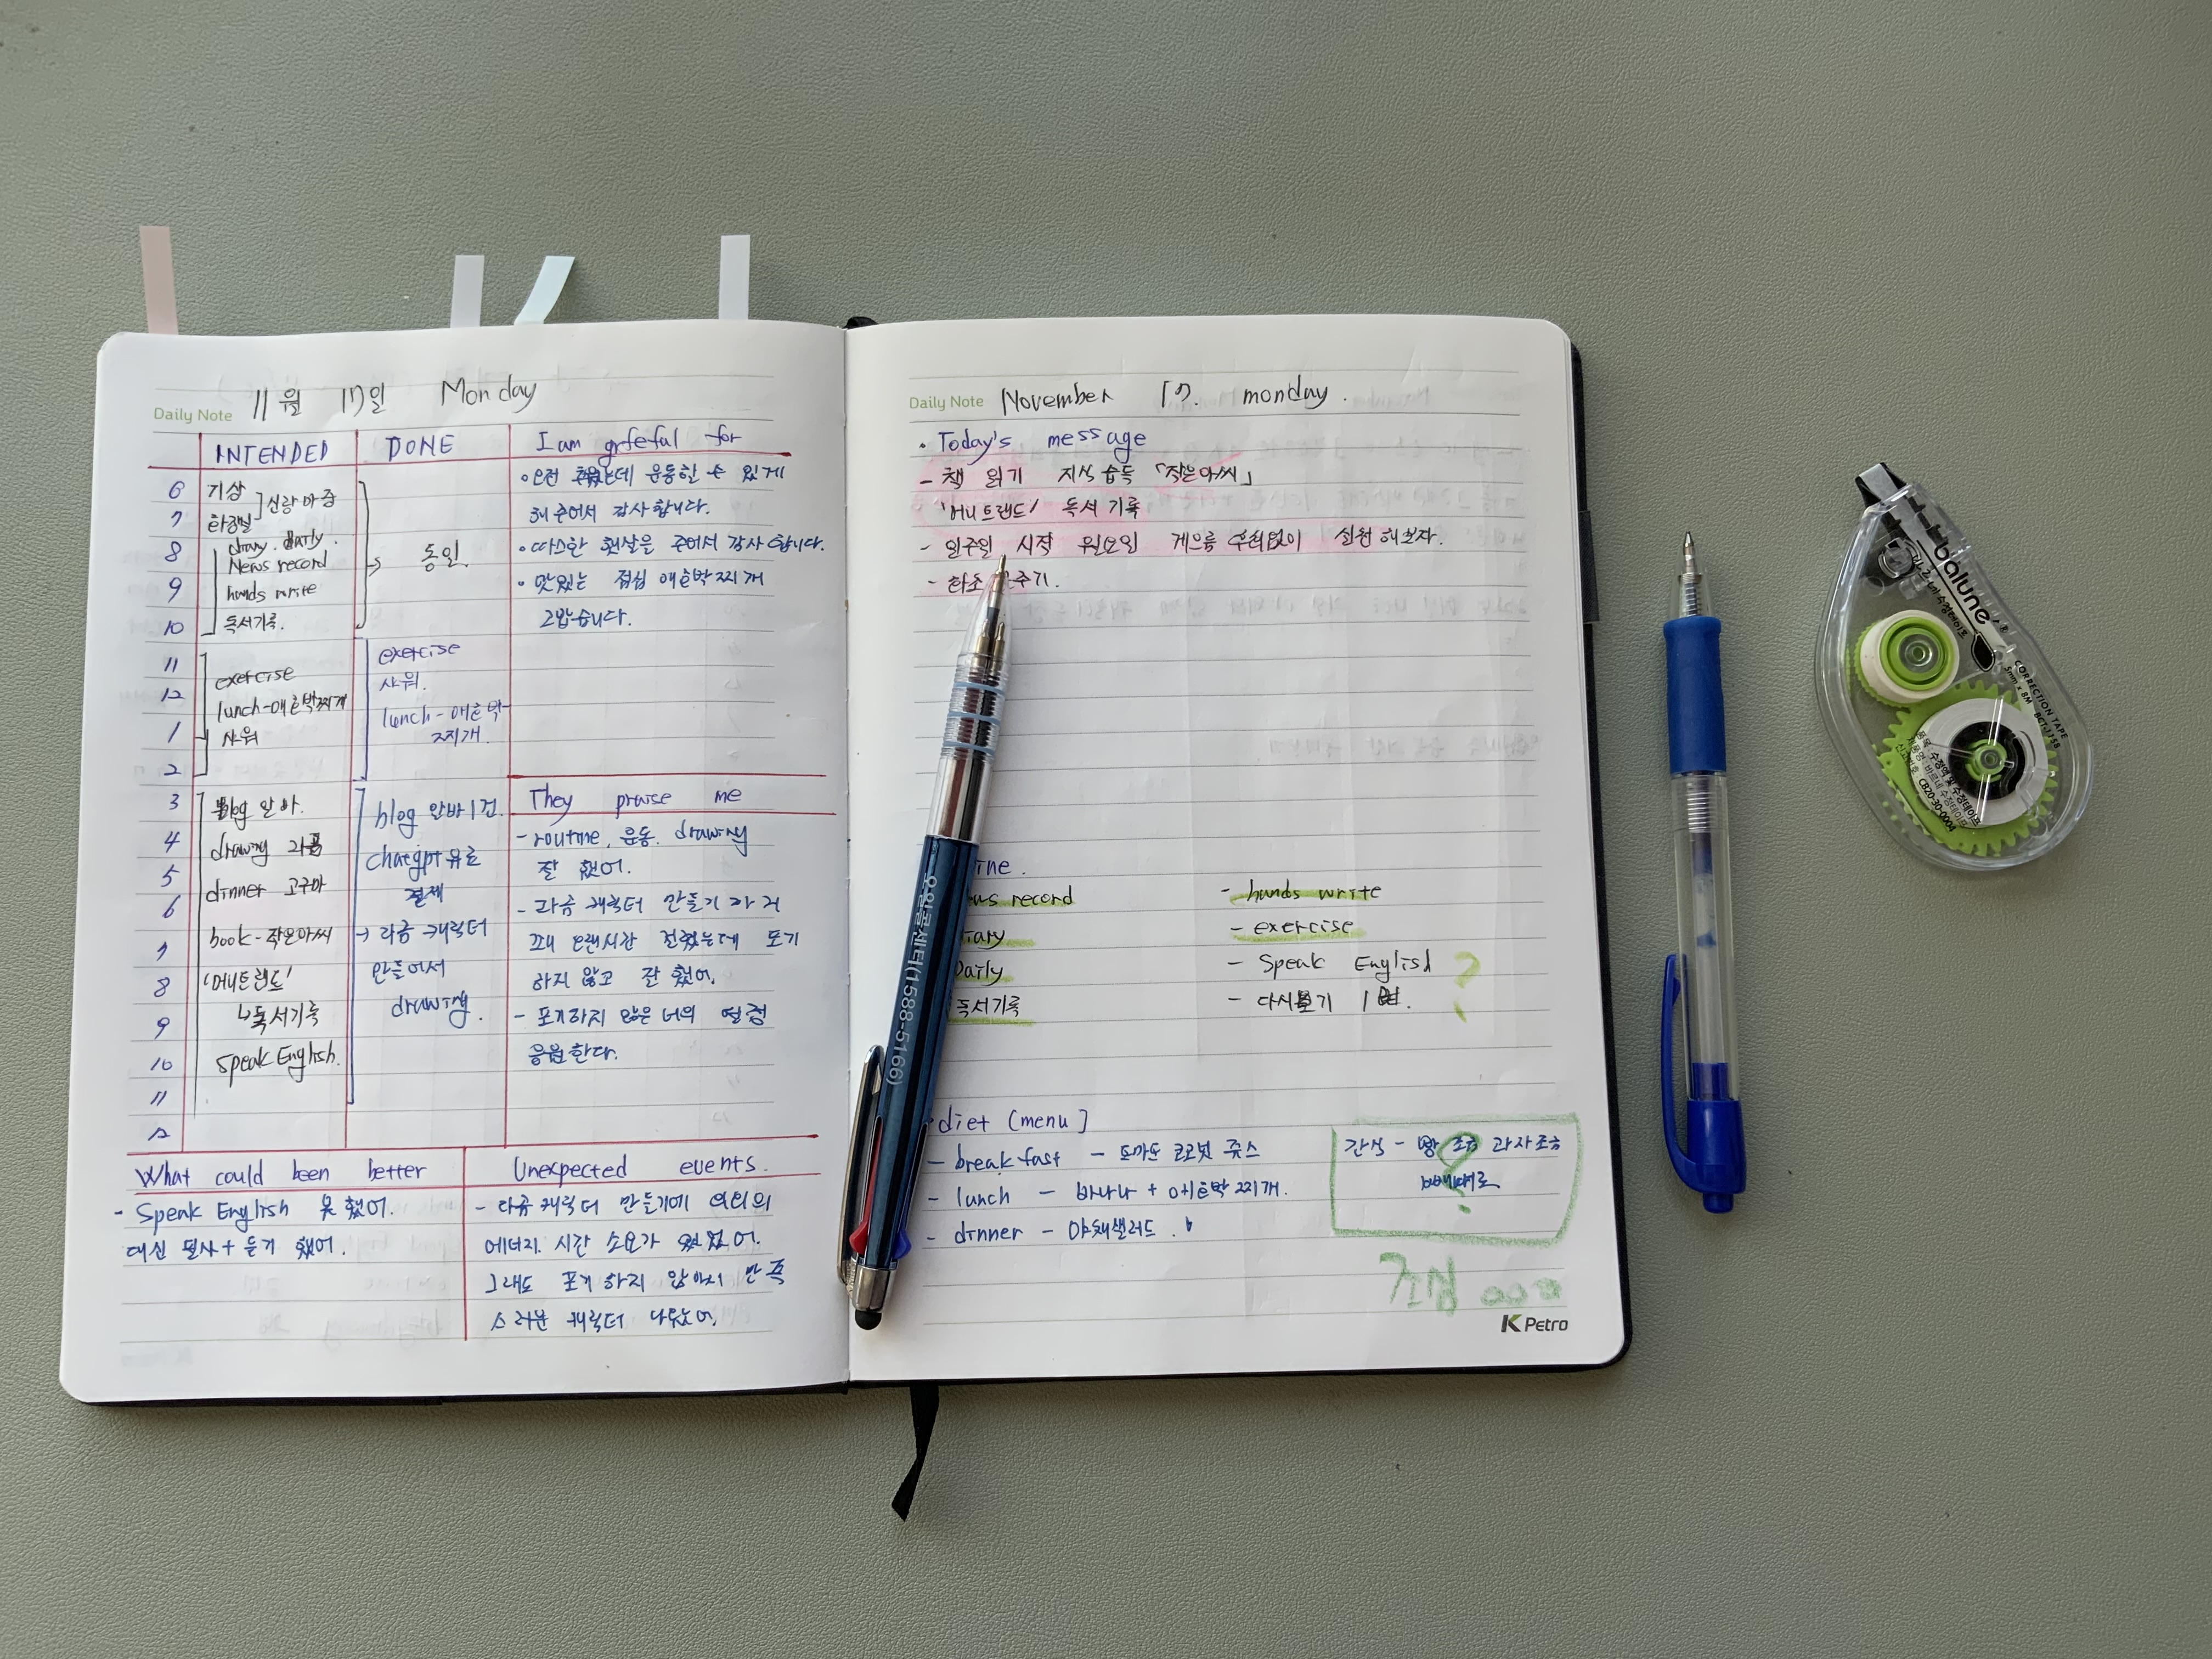 Daily Note 11월 17일 Monday
INTENDED DONE I am grfeful for
6 기상
7 화장실
신랑 아줌
diary. daily.
8 News record
9 hands write
10 독서기록.
동일.
운동할 수 있게
해 주어서 감사합니다.
따스한 햇살을 주어서 감사합니다.
맛있는 점심 애호박찌개
고맙습니다.
11
12 exercise
lunch-애호박찌개
1 샤워
2
exercise
샤워.
lunch-애호박
찌개.
3 blog 알바.
4 drawing 라꼼
5 dinner 고구마
6
7 book-작은아씨
8 '머니트렌드'
9 ↳독서기록
10 Speak English.
11
12
blog 알바 1건.
Chatgpt 유료
결제
→ 라꼼 캐릭터
만들어서
drawing.
They praise me
- routine, 운동. drawing
잘 했어.
- 라꼼 캐릭터 만들기
오랜시간 포기
하지 않고 잘 했어.
- 포기하지 않은 너의 열정
응원한다.
What could been better
- Speak English 못 했어.
대신 필사 + 듣기 했어.
Unexpected events.
- 라꼼 캐릭터 만들기에 의외의
에너지. 시간 소요가 있었어.
그래도 포기 하지 않아서 만족
스러운 캐릭터 나왔어.
Daily Note November 17. monday.
• Today's message
- 책 읽기 지식 습득 「작은아씨」
'머니트렌드' 독서 기록
- 일주일 시작 월요일 게으름 후회없이 실천 해보자.
- 화초 주기.
ine.
ws record - hands write
iary - exercise
Daily - Speak English ?
독서기록 - 다시보기 1번.
• diet [menu]
- breakfast - 토마토 코코넛 쥬스
- lunch - 바나나 + 애호박찌개.
- dinner - 야채샐러드.
간식 - 빵 조금 과자조금
빼빼로
?
조심
K Petro
오일콜센터(1588-5166)
balune
바르네 수정테이프
CORRECTION TAPE
5mm x 8M BCT-1158
품목: 수정액 및 수정테이프
제품명: 바르네 수정테이프
신고번호: CB20-30-0004